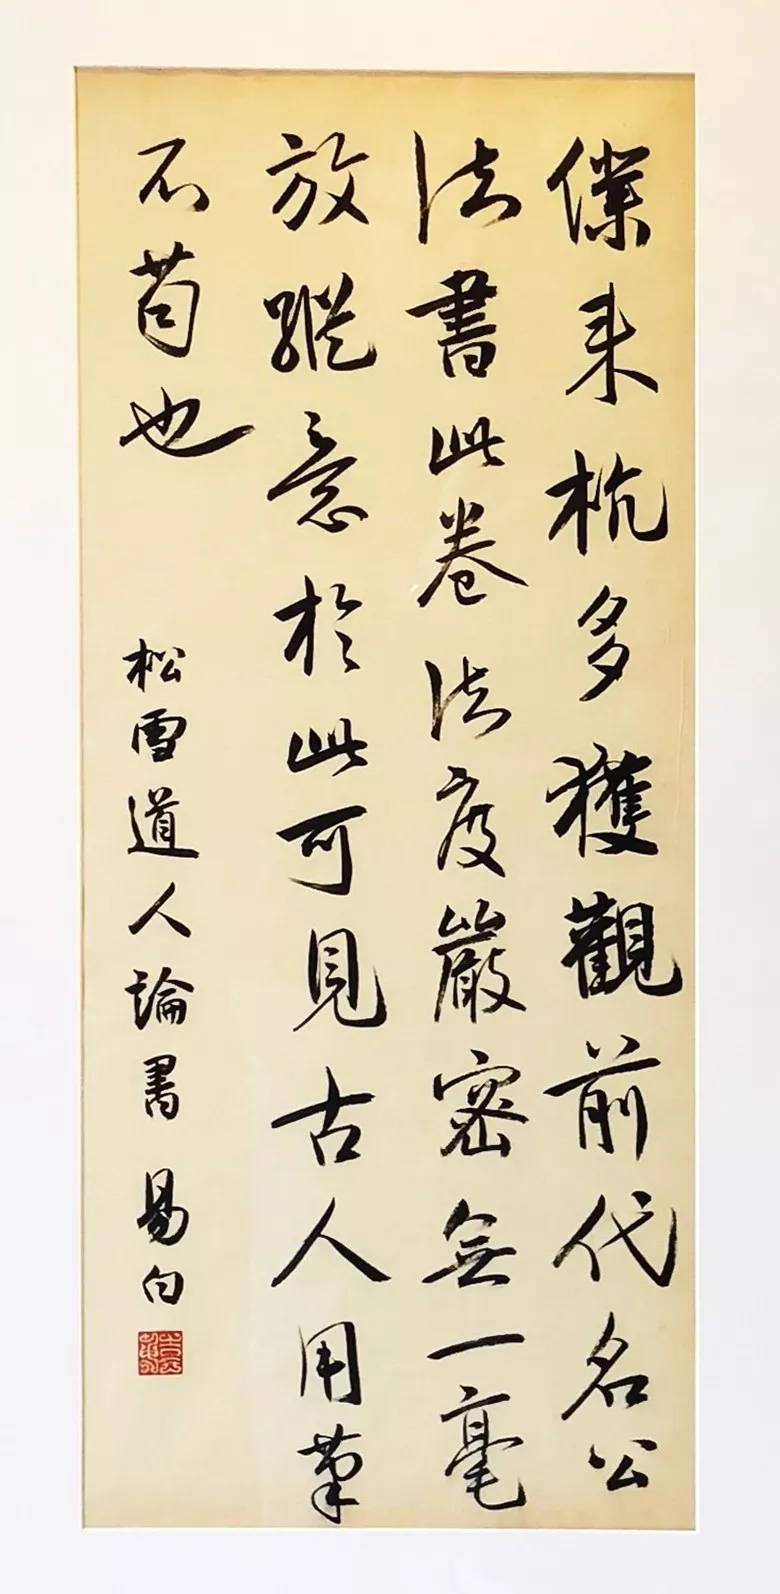 僕来杭多獲觀前代名公
法書此卷法度嚴密無一毫
放蹤意於此可見古人用筆
不苟也
松雪道人論書 易白